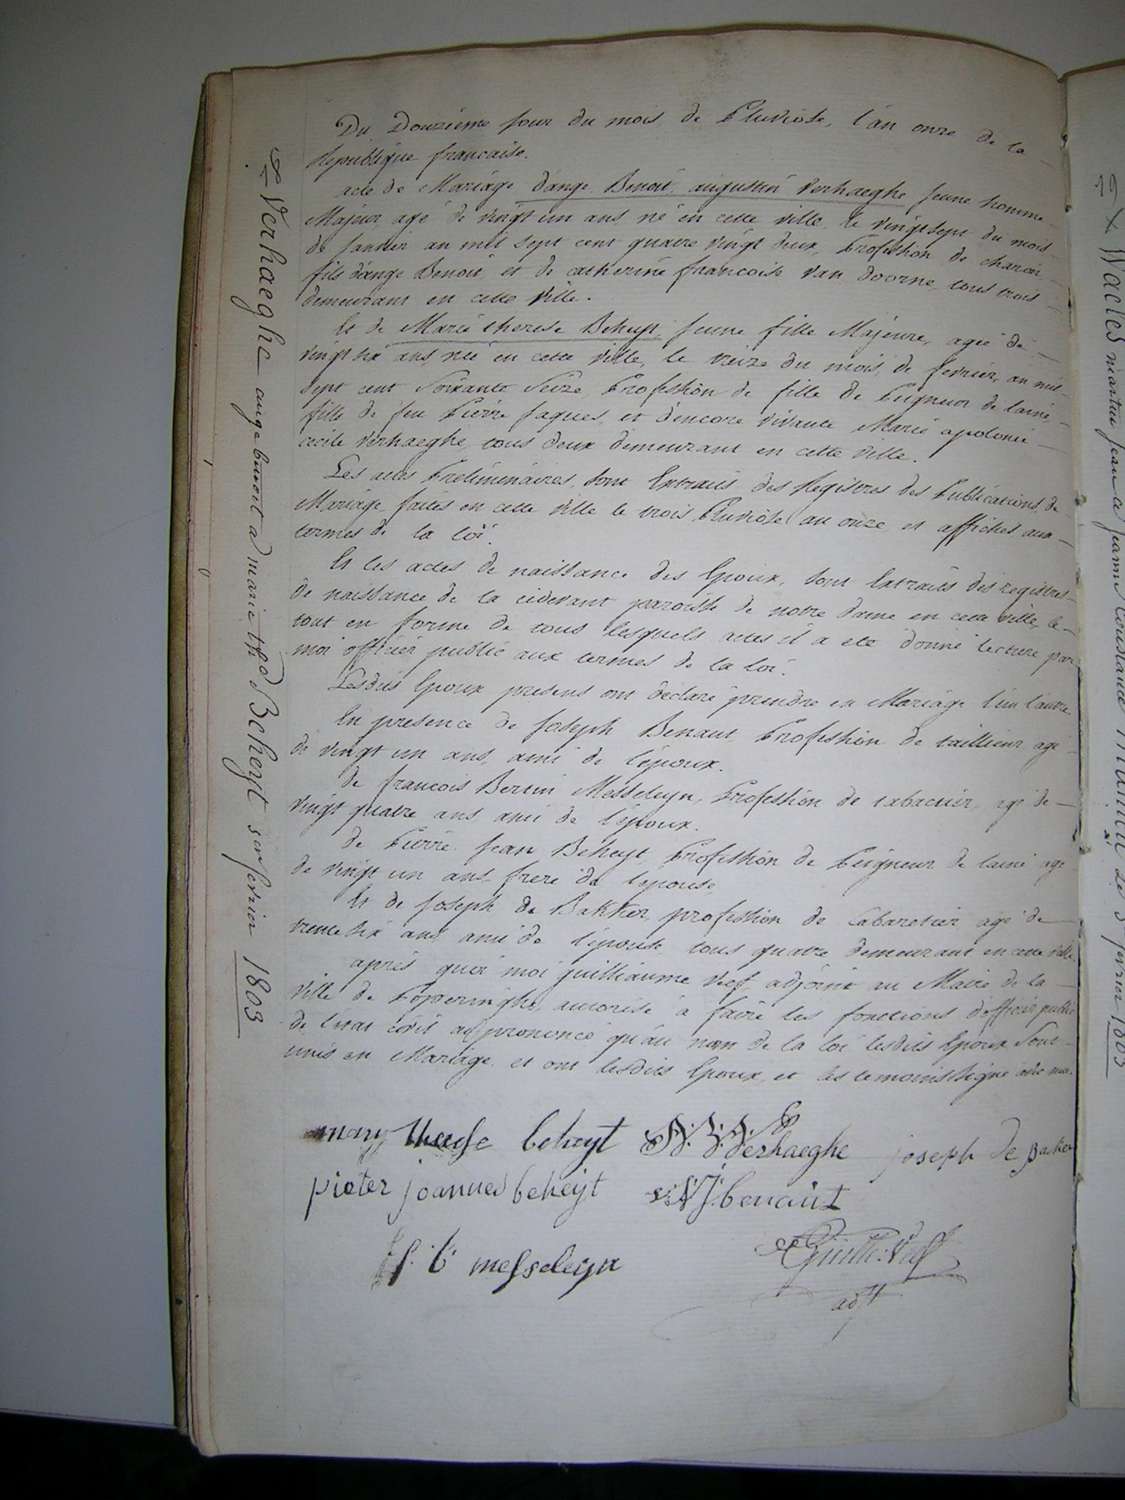 Du Douzieme Jour du mois de Pluviose, l'an onze de la
Republique francaise.
acte de Mariage d'ange Benoit augustin Verhaeghe Jeune homme
Majeur agé de vingt un ans né en cette ville le vingt sept du mois
de Janvier an mil sept cent quatre vingt deux, Profession de
fils d'ange Benoit et de catherine francoise van Doorne tous trois
demeurant en cette ville.
Et de Marie therese Beheyt Jeune fille Majeure, agée de
vingt six ans, née en cette ville, le treize du mois de fevrier, an mil
sept cent Soixante Seize, Profession de fille de Peigneur de laine
fille de feu Pierre Jaques, et d'encore vivante Marie apolonie
cecile verhaeghe, tous deux demeurant en cette ville.
Les actes Préliminaires, sont Extraits des Registres des Publications de
Mariage faites en cette ville le trois Pluviose an onze et affichés aux
termes de la loi.
Et les actes de naissance des Epoux, sont Extraits des registres
de naissance de la cidevant paroisse de notre dame en cette ville, le
tout en forme de tous lesquels actes il a été donné lecture par
moi officier public aux termes de la loi.
Lesdits Epoux presens ont déclaré prendre en Mariage l'un l'autre
En presence de Joseph Benaut Profession de taillieur agé
de vingt un ans, ami de l'époux.
de francois Bertin Messeleyn, Profession de tabactier, agé de
vingt quatre ans ami de l'époux.
de Pierre Jean Beheyt Profession de Peigneur de laine agé
de vingt un ans frere de l'epouse
Et de Joseph de Bakker, profession de Cabaretier agé de
trente six ans ami de l'épouse tous quatre demeurant en cette ville
après quoi moi Guilliaume Vief, adjoint au Maire de la
ville de Poperinghe, autorisé à faire les fonctions d'officier public
de l'etat civil ai prononcé qu'au nom de la loi lesdits Epoux Sont
unis en Mariage, et ont lesdits Epoux, et les temoins signé avec moi.
mary therese beheyt A. B. A. Verhaeghe joseph de Bakker
pieter joannes beheyt J. benaut
f. b. messeleyn Guille: Vief
adjt
Verhaeghe ange benoit a marie the Beheyt 1er fevrier 1803
Waeles martin jean a jeanne constance le 3 fevrier 1803